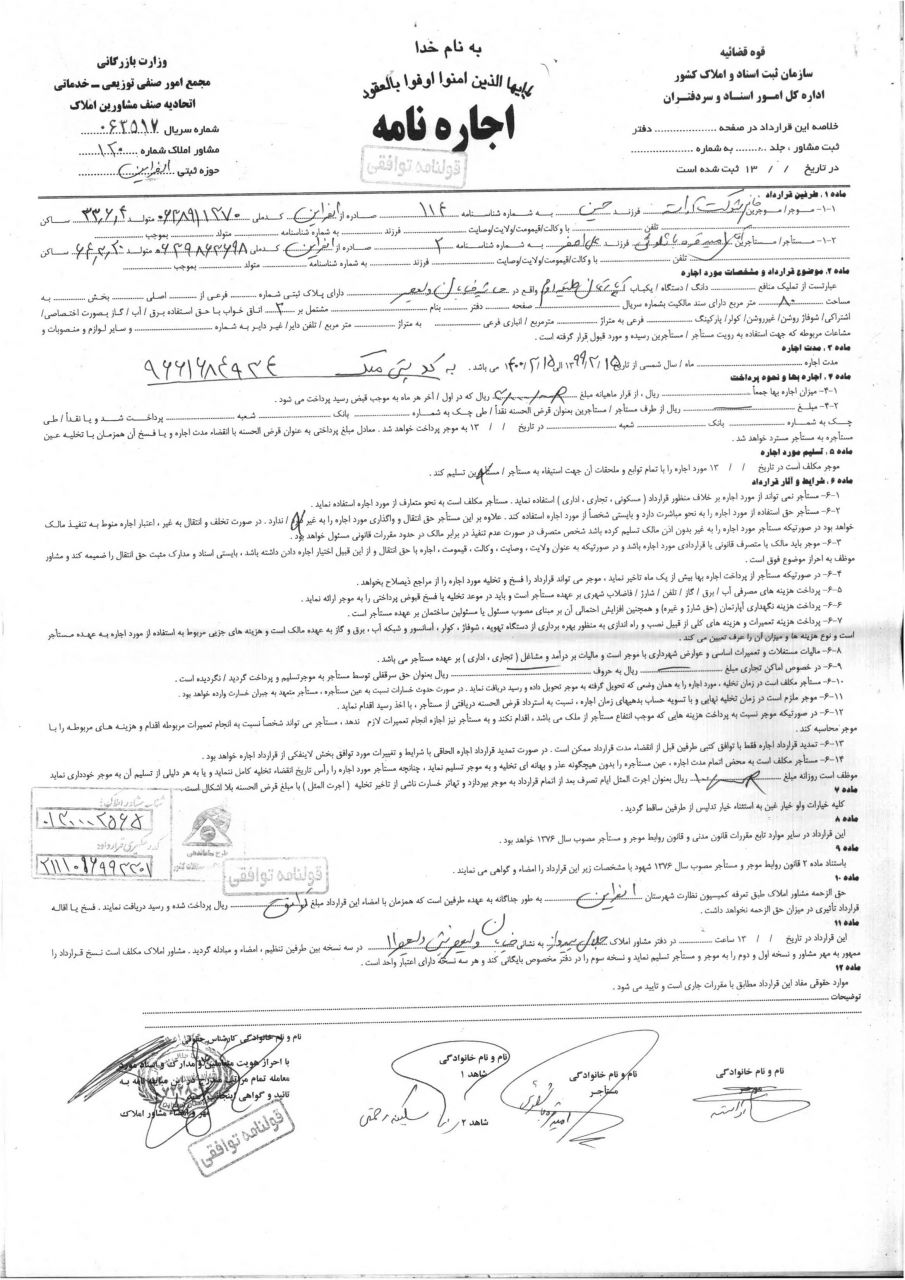 به نام خدا
یاایها الذین امنوا اوفوا بالعقود
اجاره نامه
قوه قضائیه
سازمان ثبت اسناد و املاک کشور
اداره کل امور اسناد و سردفتران
خلاصه این قرارداد در صفحه .......... دفتر
ثبت مشاور ، جلد ........ به شماره ..........
در تاریخ / / ۱۳ ثبت شده است
وزارت بازرگانی
مجمع امور صنفی توزیعی ـ خدماتی
اتحادیه صنف مشاورین املاک
شماره سریال ۰۶۲۵۱۷
مشاور املاک شماره ۱۲۰
حوزه ثبتی اسفراین
قولنامه توافقی
ماده ۱. طرفین قرارداد
۱-۱- موجر/ موجرین خانم شوکت آراسته فرزند حسین به شماره شناسنامه ۱۱۴ صادره از اسفراین کدملی متولد ۳۳,۶,۴ ساکن
تلفن با وکالت/قیمومت/ولایت/وصایت فرزند به شماره شناسنامه متولد بموجب
۱-۲- مستأجر/ مستأجرین فرزند علی اصغر به شماره شناسنامه ۲ صادره از اسفراین کدملی متولد ساکن
تلفن با وکالت/قیمومت/ولایت/وصایت فرزند به شماره شناسنامه متولد بموجب
ماده ۲. موضوع قرارداد و مشخصات مورد اجاره
عبارتست از تملیک منافع دانگ / دستگاه / یکباب آپارتمان طبقه دوم واقع در خیابان ولیعصر دارای پلاک ثبتی شماره فرعی از اصلی بخش به
مساحت ۸۰ متر مربع دارای سند مالکیت بشماره سریال صفحه دفتر بنام مشتمل بر ۲ اتاق خواب با حق استفاده برق / آب / گاز بصورت اختصاصی/
اشتراکی/ شوفاژ روشن/ غیرروشن/ کولر/ پارکینگ فرعی به متراژ مترمربع / انباری فرعی به متراژ متر مربع / تلفن دایر/ غیر دایر به شماره و سایر لوازم و منصوبات و
مشاعات مربوطه که جهت استفاده به رویت مستأجر / مستأجرین رسیده و مورد قبول قرار گرفته است .
ماده ۳. مدت اجاره
مدت اجاره ماه / سال شمسی از تاریخ ۱۳۹۹/۲/۱۵ الی ۱۴۰۰/۲/۱۵ می باشد . به کد پستی ملک ۹۶۶۱۶۸۴۹۳۴
ماده ۴. اجاره بها و نحوه پرداخت
۴-۱- میزان اجاره بها جمعاً ریال ، از قرار ماهیانه مبلغ ریال که در اول / آخر هر ماه به موجب قبض رسید پرداخت می شود .
۴-۲- مبلغ ریال از طرف مستأجر / مستأجرین بعنوان قرض الحسنه نقداً / طی چک به شماره بانک شعبه پرداخت شد و یا نقداً / طی
چک به شماره بانک شعبه در تاریخ / / ۱۳ به موجر پرداخت خواهد شد . معادل مبلغ پرداختی به عنوان قرض الحسنه با انقضاء مدت اجاره و یا فسخ آن همزمان با تخلیه عین
مستأجره به مستأجر مسترد خواهد شد .
ماده ۵. تسلیم مورد اجاره
موجر مکلف است در تاریخ / / ۱۳ مورد اجاره را با تمام توابع و ملحقات آن جهت استیفاء به مستأجر / مستأجرین تسلیم کند .
ماده ۶. شرایط و آثار قرارداد
۶-۱- مستأجر نمی تواند از مورد اجاره بر خلاف منظور قرارداد ( مسکونی ، تجاری ، اداری ) استفاده نماید . مستأجر مکلف است به نحو متعارف از مورد اجاره استفاده نماید .
۶-۲- مستأجر حق استفاده از مورد اجاره را به نحو مباشرت دارد و بایستی شخصاً از مورد اجاره استفاده کند . علاوه بر این مستأجر حق انتقال و واگذاری مورد اجاره را به غیر / ندارد . در صورت تخلف و انتقال به غیر ، اعتبار اجاره منوط به تنفیذ مالک
خواهد بود در صورتیکه مستأجر مورد اجاره را به غیر بدون اذن مالک تسلیم کرده باشد شخص متصرف در صورت عدم تنفیذ در برابر مالک در حدود مقررات قانونی مسئول خواهد بود .
۶-۳- موجر باید مالک یا متصرف قانونی یا قراردادی مورد اجاره باشد و در صورتیکه به عنوان ولایت ، وصایت ، وکالت ، قیمومت ، اجاره با حق انتقال و از این قبیل اختیار اجاره دادن داشته باشد ، بایستی اسناد و مدارک مثبت حق انتقال را ضمیمه کند و مشاور
موظف به احراز موضوع فوق است .
۶-۴- در صورتیکه مستأجر از پرداخت اجاره بها بیش از یک ماه تاخیر نماید ، موجر می تواند قرارداد را فسخ و تخلیه مورد اجاره را از مراجع ذیصلاح بخواهد .
۶-۵- پرداخت هزینه های مصرفی آب / برق / گاز / تلفن / شارژ / فاضلاب شهری بر عهده مستأجر است و باید در موعد تخلیه یا فسخ قبوض پرداختی را به موجر ارائه نماید .
۶-۶- پرداخت هزینه نگهداری آپارتمان (حق شارژ و غیره) و همچنین افزایش احتمالی آن بر مبنای مصوب مسئول یا مسئولین ساختمان بر عهده مستأجر است .
۶-۷- پرداخت هزینه تعمیرات و هزینه های کلی از قبیل نصب و راه اندازی به منظور بهره برداری از دستگاه تهویه ، شوفاژ ، کولر ، آسانسور و شبکه آب ، برق و گاز به عهده مالک است و هزینه های جزیی مربوط به استفاده از مورد اجاره به عهده مستأجر
است و نوع هزینه ها و میزان آن را عرف تعیین می کند .
۶-۸- مالیات مستغلات و تعمیرات اساسی و عوارض شهرداری با موجر است و مالیات بر درآمد و مشاغل ( تجاری ، اداری ) بر عهده مستأجر می باشد .
۶-۹- در خصوص اماکن تجاری مبلغ ریال به حروف ریال بعنوان حق سرقفلی توسط مستأجر به موجرتسلیم و پرداخت گردید / نگردیده است .
۶-۱۰- مستأجر مکلف است در زمان تخلیه ، مورد اجاره را به همان وضعی که تحویل گرفته به موجر تحویل داده و رسید دریافت نماید . در صورت حدوث خسارات نسبت به عین مستأجره ، مستأجر متعهد به جبران خسارت وارده خواهد بود .
۶-۱۱- موجر ملزم است در زمان تخلیه نهایی و با تسویه حساب بدهیهای زمان اجاره ، نسبت به استرداد قرض الحسنه دریافتی از مستأجر ، با اخذ رسید اقدام نماید .
۶-۱۲- در صورتیکه موجر نسبت به پرداخت هزینه هایی که موجب انتفاع مستأجر از ملک می باشد ، اقدام نکند و به مستأجر نیز اجازه انجام تعمیرات لازم ندهد ، مستأجر می تواند شخصاً نسبت به انجام تعمیرات مربوطه اقدام و هزینه های مربوطه را با
موجر محاسبه کند .
۶-۱۳- تمدید قرارداد اجاره فقط با توافق کتبی طرفین قبل از انقضاء مدت قرارداد ممکن است . در صورت تمدید قرارداد اجاره الحاقی با شرایط و تغییرات مورد توافق بخش لاینفکی از قرارداد اجاره خواهد بود .
۶-۱۴- مستأجر مکلف است به محض اتمام مدت اجاره ، عین مستأجره را بدون هیچگونه عذر و بهانه ای تخلیه و به موجر تسلیم نماید ، چنانچه مستأجر مورد اجاره را رأس تاریخ انقضاء تخلیه کامل ننماید و یا به هر دلیلی از تسلیم آن به موجر خودداری نماید
موظف است روزانه مبلغ ریال بعنوان اجرت المثل ایام تصرف بعد از اتمام قرارداد به موجر بپردازد و تهاتر خسارت ناشی از تاخیر تخلیه ( اجرت المثل ) با مبلغ قرض الحسنه بلا اشکال است .
ماده ۷
کلیه خیارات ولو خیار غبن به استثناء خیار تدلیس از طرفین ساقط گردید .
ماده ۸
این قرارداد در سایر موارد تابع مقررات قانون مدنی و قانون روابط موجر و مستأجر مصوب سال ۱۳۷۶ خواهد بود .
ماده ۹
باستناد ماده ۲ قانون روابط موجر و مستأجر مصوب سال ۱۳۷۶ شهود با مشخصات زیر این قرارداد را امضاء و گواهی می نمایند .
ماده ۱۰
حق الزحمه مشاور املاک طبق تعرفه کمیسیون نظارت شهرستان اسفراین به طور جداگانه به عهده طرفین است که همزمان با امضاء این قرارداد مبلغ توافقی ریال پرداخت شده و رسید دریافت نمایند . فسخ یا اقاله
قرارداد تأثیری در میزان حق الزحمه نخواهد داشت .
شناسه مشاور املاک:
کد رهگیری قرارداد
طرح ساماندهی
قولنامه توافقی
ماده ۱۱
این قرارداد در تاریخ / / ۱۳ ساعت در دفتر مشاور املاک به نشانی خیابان ولیعصر نبش ولیعصر ۱۱ در سه نسخه بین طرفین تنظیم ، امضاء و مبادله گردید . مشاور املاک مکلف است نسخ قرارداد را
ممهور به مهر مشاور و نسخه اول و دوم را به موجر و مستأجر تسلیم نماید و نسخه سوم را در دفتر مخصوص بایگانی کند و هر سه نسخه دارای اعتبار واحد است .
ماده ۱۲
موارد حقوقی مفاد این قرارداد مطابق با مقررات جاری است و تایید می شود .
توضیحات
نام و نام خانوادگی
موجر
آراسته
نام و نام خانوادگی
مستاجر
نام و نام خانوادگی
شاهد ۱
شاهد ۲
سکینه رحمتی
نام و نام خانوادگی کارشناس حقوقی
با احراز هویت متعاملین و مدارک و اسناد مورد
معامله تمام مراتب مندرج در این مبایعه نامه به
تائید و گواهی اینجانب
مهر و امضاء مشاور املاک
قولنامه توافقی